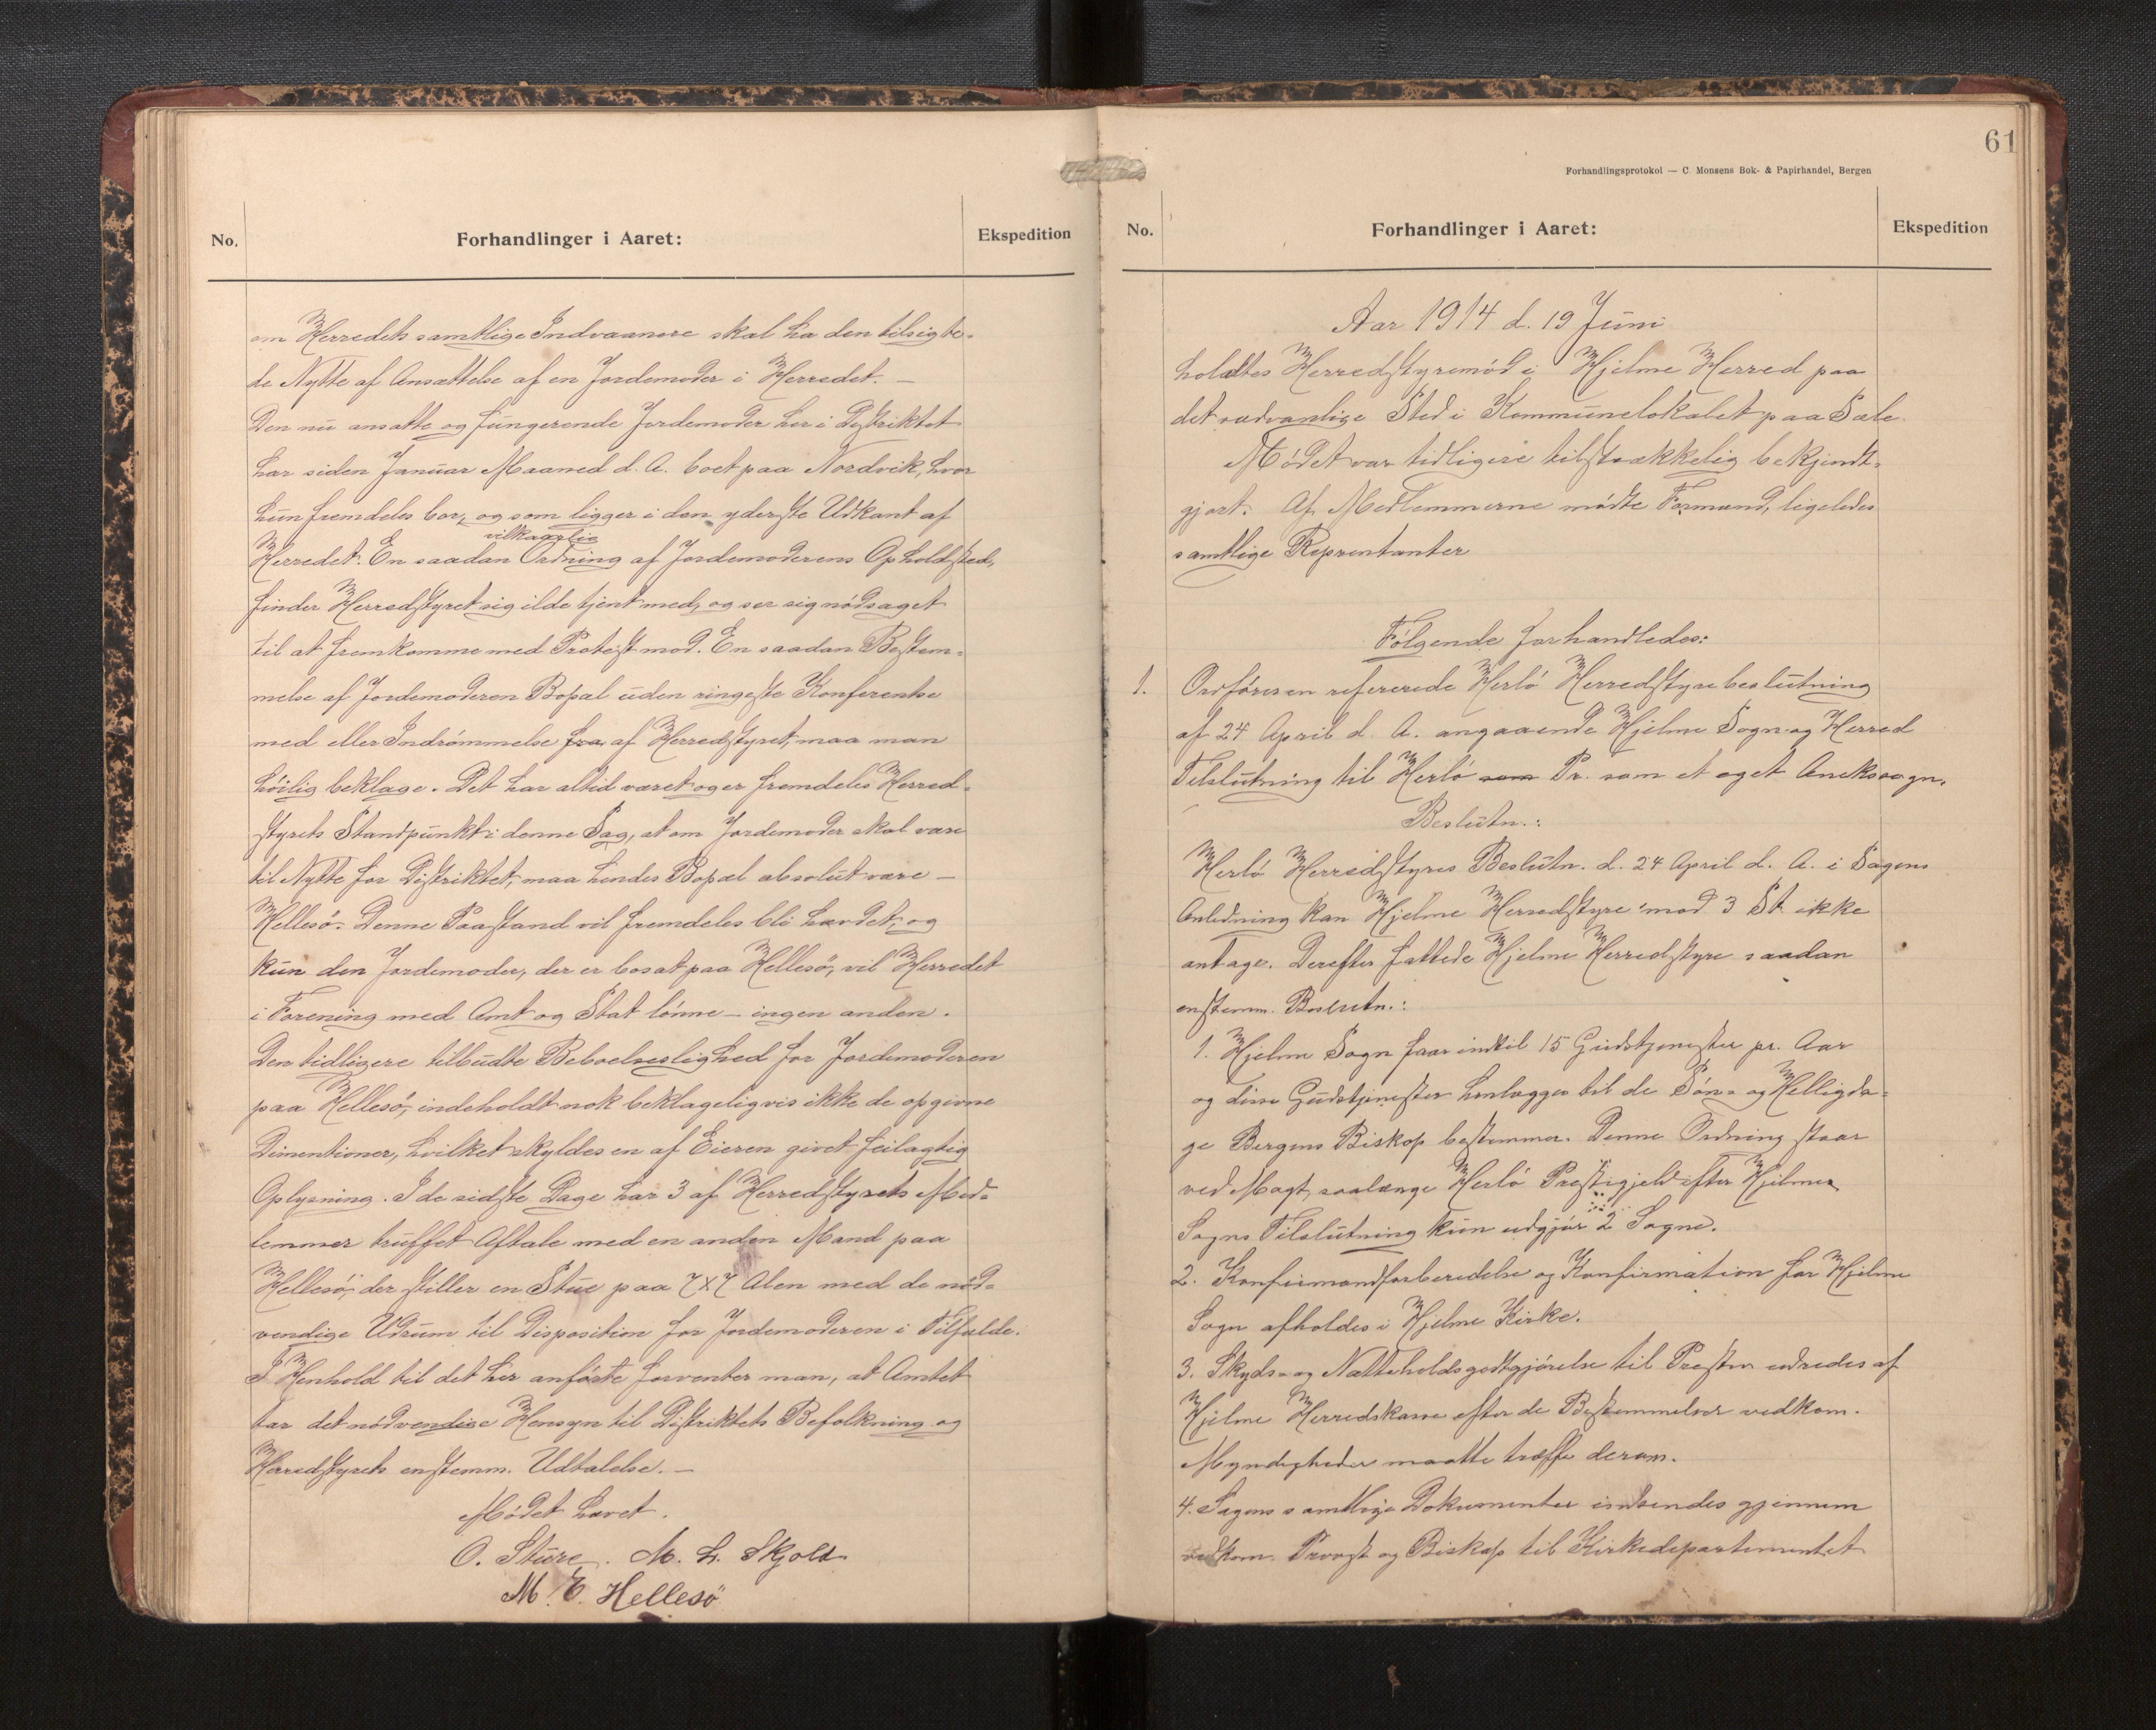 No.
Forhandlinger i Aaret:
Ekspedition
om Herredets samtlige Indvaanere skal ha den tilsigte-
de Nytte af Ansættelse af en Jordemoder i Herredet. —
Den nu ansatte og fungerende Jordemoder her i Distriktet
har siden Januar Maaned d. A. boet paa Nordvik, hvor
hun fremdeles bor, og som ligger i den yderste Udkant af
vilkaarlig
Herredet. En saadan Ordning af Jordemoderens Opholdsted,
finder Herredstyret sig ilde tjent med, og ser sig nødsaget
til at fremkomme med Protest mod. En saadan Bestem-
melse af Jordemoderen Bopæl uden ringeste Konferentse
med eller Indrømmelse fra af Herredstyret, maa man
høilig beklage. Det har altid været og er fremdeles Herred-
styrets Standpunkt i denne Sag, at om Jordemoder skal være
til Nytte for Distriktet, maa hendes Bopæl absolut være —
Hellesø. Denne Paastand vil fremdeles bli hævdet, og
kun den Jordemoder, der er bosat paa Hellesø, vil Herredet
i Forening med Amt og Stat lønne — ingen anden.
Den tidligere tilbudte Beboelseslighed for Jordemoderen
paa Hellesø, indeholdt nok beklageligvis ikke de opgivne
Dimentioner, hvilket skyldes en af Eieren givet feilagtig
Oplysning. I de sidste Dage har 3 af Herredstyrets Med-
lemmer truffet Aftale med en anden Mand paa
Hellesø, der stiller en Stue paa 7x7 Alen med de nød-
vendige Udrum til Disposition for Jordemoderen i Tilfælde.
I Henhold til det her anførte forventer man, at Amtet
tar det nødvendige Hensyn til Distriktets Befolkning og
Herredstyrets enstemm. Udtalelse. —
Mødet hævet.
O. Sture. M. H. Skjold
M. E. Hellesö
61
Forhandlingsprotokol — C. Monsens Bok- & Papirhandel, Bergen
No.
Forhandlinger i Aaret:
Ekspedition
Aar 1914 d. 19 Juni
holdtes Herredstyremød i Hjelme Herred paa
det sædvanlige Sted i Kommunelokalet paa Sæle.
Mødet var tidligere tilstrækkelig bekjendt-
gjort. Af Medlemmerne mødte Formand, ligeledes
samtlige Reprentanter
Følgende forhandledes:
1. Ordføreren refererede Herlø Herredstyrebeslutning
af 24 April d. A. angaaende Hjelme Sogn og Herred
Tilslutning til Herlø som Pr. som et eget Anekssogn.
Beslutn.:
Herlø Herredstyres Beslutn. d. 24 April d. A. i Sagens
Anledning kan Hjelme Herredstyre mod 3 St. ikke
antage. Derefter fattede Hjelme Herredstyre saadan
enstemm. Beslutn.:
1. Hjelme Sogn faar indtil 15 Gudstjenester pr. Aar
og disse Gudstjenester henlægges til de Søn- og Helligda-
ge Bergens Biskop bestemmer. Denne Ordning staar
ved Magt, saalænge Herlø Prestegjeld efter Hjelmes
Sogns Tilslutning kun udgjør 2 Sogne.
2. Konfirmandforberedelse og Konfirmation for Hjelme
Sogn afholdes i Hjelme Kirke.
3. Skyds- og Natteholdsgodtgjørelse til Presten udredes af
Hjelme Herredskasse efter de Bestemmelser vedkom.
Myndigheder maatte træffe derom.
4. Sagens samtlige Dokumenter indsendes gjennem
vedkom. Provst og Biskop til Kirkedepartementet